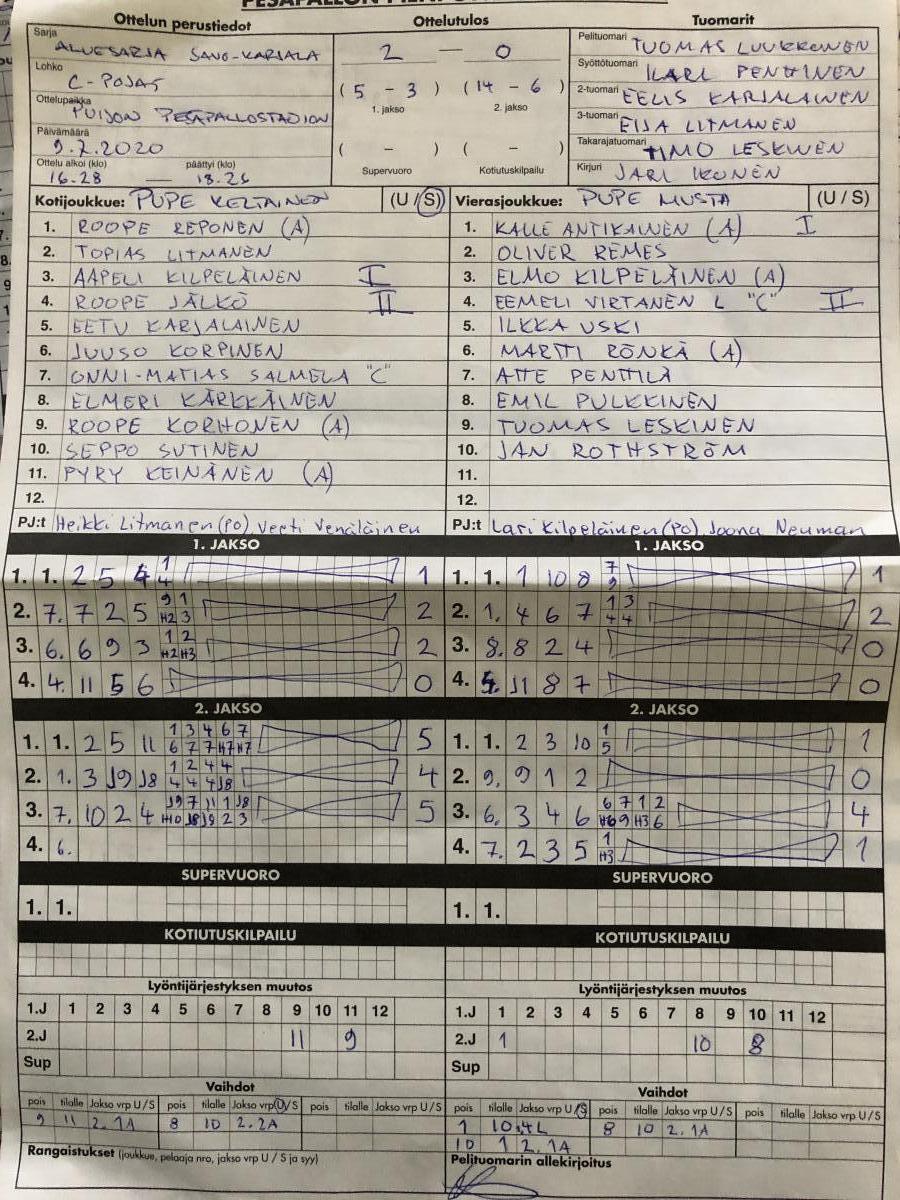 Ottelun perustiedot Ottelutulos Tuomarit
Sarja ALUESARJA SAVO-KARJALA
Lohko C-POJAT
Ottelupaikka PUIJON PESÄPALLOSTADION
Päivämäärä 9.7.2020
Ottelu alkoi (klo) päättyi (klo)
16.28 — 18.26
2 — 0
(5 - 3) (14 - 6)
1. jakso 2. jakso
( - ) ( - )
Supervuoro Kotiutuskilpailu
Pelituomari TUOMAS LUUKKONEN
Syöttötuomari ILARI PENTTINEN
2-tuomari EELIS KARJALAINEN
3-tuomari EIJA LITMANEN
Takarajatuomari TIMO LESKINEN
Kirjuri JARI IKONEN
Kotijoukkue: PUPE KELTAINEN (U/S)
1. ROOPE REPONEN (A)
2. TOPIAS LITMANEN
3. AAPELI KILPELÄINEN I
4. ROOPE JÄLKÖ II
5. EETU KARJALAINEN
6. JUUSO KORPINEN
7. ONNI-MATIAS SALMELA "C"
8. ELMERI KÄRKKÄINEN
9. ROOPE KORHONEN (A)
10. SEPPO SUTINEN
11. PYRY KEINÄNEN (A)
12.
PJ:t Heikki Litmanen (PO), Veeti Venäläinen
Vierasjoukkue: PUPE MUSTA (U/S)
1. KALLE ANTIKAINEN (A) I
2. OLIVER REMES
3. ELMO KILPELÄINEN (A)
4. EEMELI VIRTANEN L "C" II
5. ILKKA USKI
6. MARTTI RÖNKÄ (A)
7. ATTE PENTTILÄ
8. EMIL PULKKINEN
9. TUOMAS LESKINEN
10. JAN ROTHSTRÖM
11.
12.
PJ:t Lari Kilpeläinen (PO), Joona Neuman
1. JAKSO
1. 1. 2 5 4 1 4 1
2. 7. 7 2 5 9 1 H2 3 2
3. 6. 6 9 3 1 2 H2 H3 2
4. 4. 11 5 6 0
1. JAKSO
1. 1. 1 10 8 7 9 1
2. 1. 4 6 7 1 3 4 4 2
3. 8. 8 2 4 0
4. 5. J1 8 7 0
2. JAKSO
1. 1. 2 5 11 1 3 4 6 7 6 7 7 H7 H7 5
2. 1. 3 J9 J8 1 2 4 4 4 4 4 J8 4
3. 7. 10 2 4 J9 7 11 1 J8 H10 J8 J9 2 3 5
4. 6.
2. JAKSO
1. 1. 2 3 10 1 5 1
2. 9. 9 1 2 0
3. 6. 3 4 6 6 7 1 2 H6 9 H3 6 4
4. 7. 2 3 5 1 H3 1
SUPERVUORO
1. 1.
SUPERVUORO
1. 1.
KOTIUTUSKILPAILU
KOTIUTUSKILPAILU
Lyöntijärjestyksen muutos
1.J 1 2 3 4 5 6 7 8 9 10 11 12
2.J 11 9
Sup
Lyöntijärjestyksen muutos
1.J 1 2 3 4 5 6 7 8 9 10 11 12
2.J 1 10 8
Sup
Vaihdot
pois tilalle Jakso vrp U/S pois tilalle Jakso vrp U/S pois tilalle Jakso vrp U/S
9 11 2.1A 8 10 2.2A
Rangaistukset (joukkue, pelaaja nro, jakso vrp U/S ja syy)
Vaihdot
pois tilalle Jakso vrp U/S pois tilalle Jakso vrp U/S pois tilalle Jakso vrp U/S
1 10 8 10 2.1A
10 1 2.1A
Pelituomarin allekirjoitus